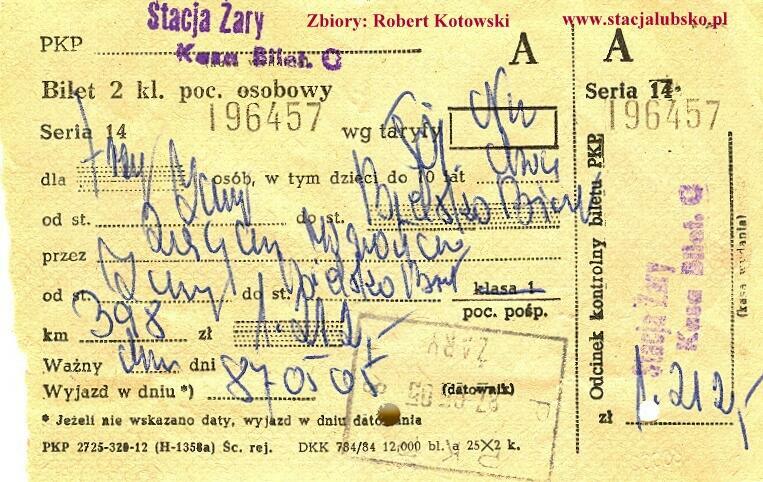 Stacja Żary
Zbiory: Robert Kotowski www.stacjalubsko.pl
PKP Kasa Bilet. C
A
Bilet 2 kl. poc. osobowy
Seria 14 196457 wg taryfy
dla osób, w tym dzieci do 10 lat
od st. Żary do st. Bielsko Biała
przez
od st. Żary do st. Bielsko Biała klasa 1
poc. pośp.
km 398 zł 1.212,-
Ważny dni
Wyjazd w dniu *) 87 05 05 (datownik)
* Jeżeli nie wskazano daty, wyjazd w dniu datowania
PKP 2725-320-12 (H-1358a) Śc. rej. DKK 784/84 12,000 bl. a 25×2 k.
ŻARY
A
Seria 14
196457
Odcinek kontrolny biletu PKP
Stacja Żary
Kasa Bilet. C
(kasa wydania)
zł 1.212,-